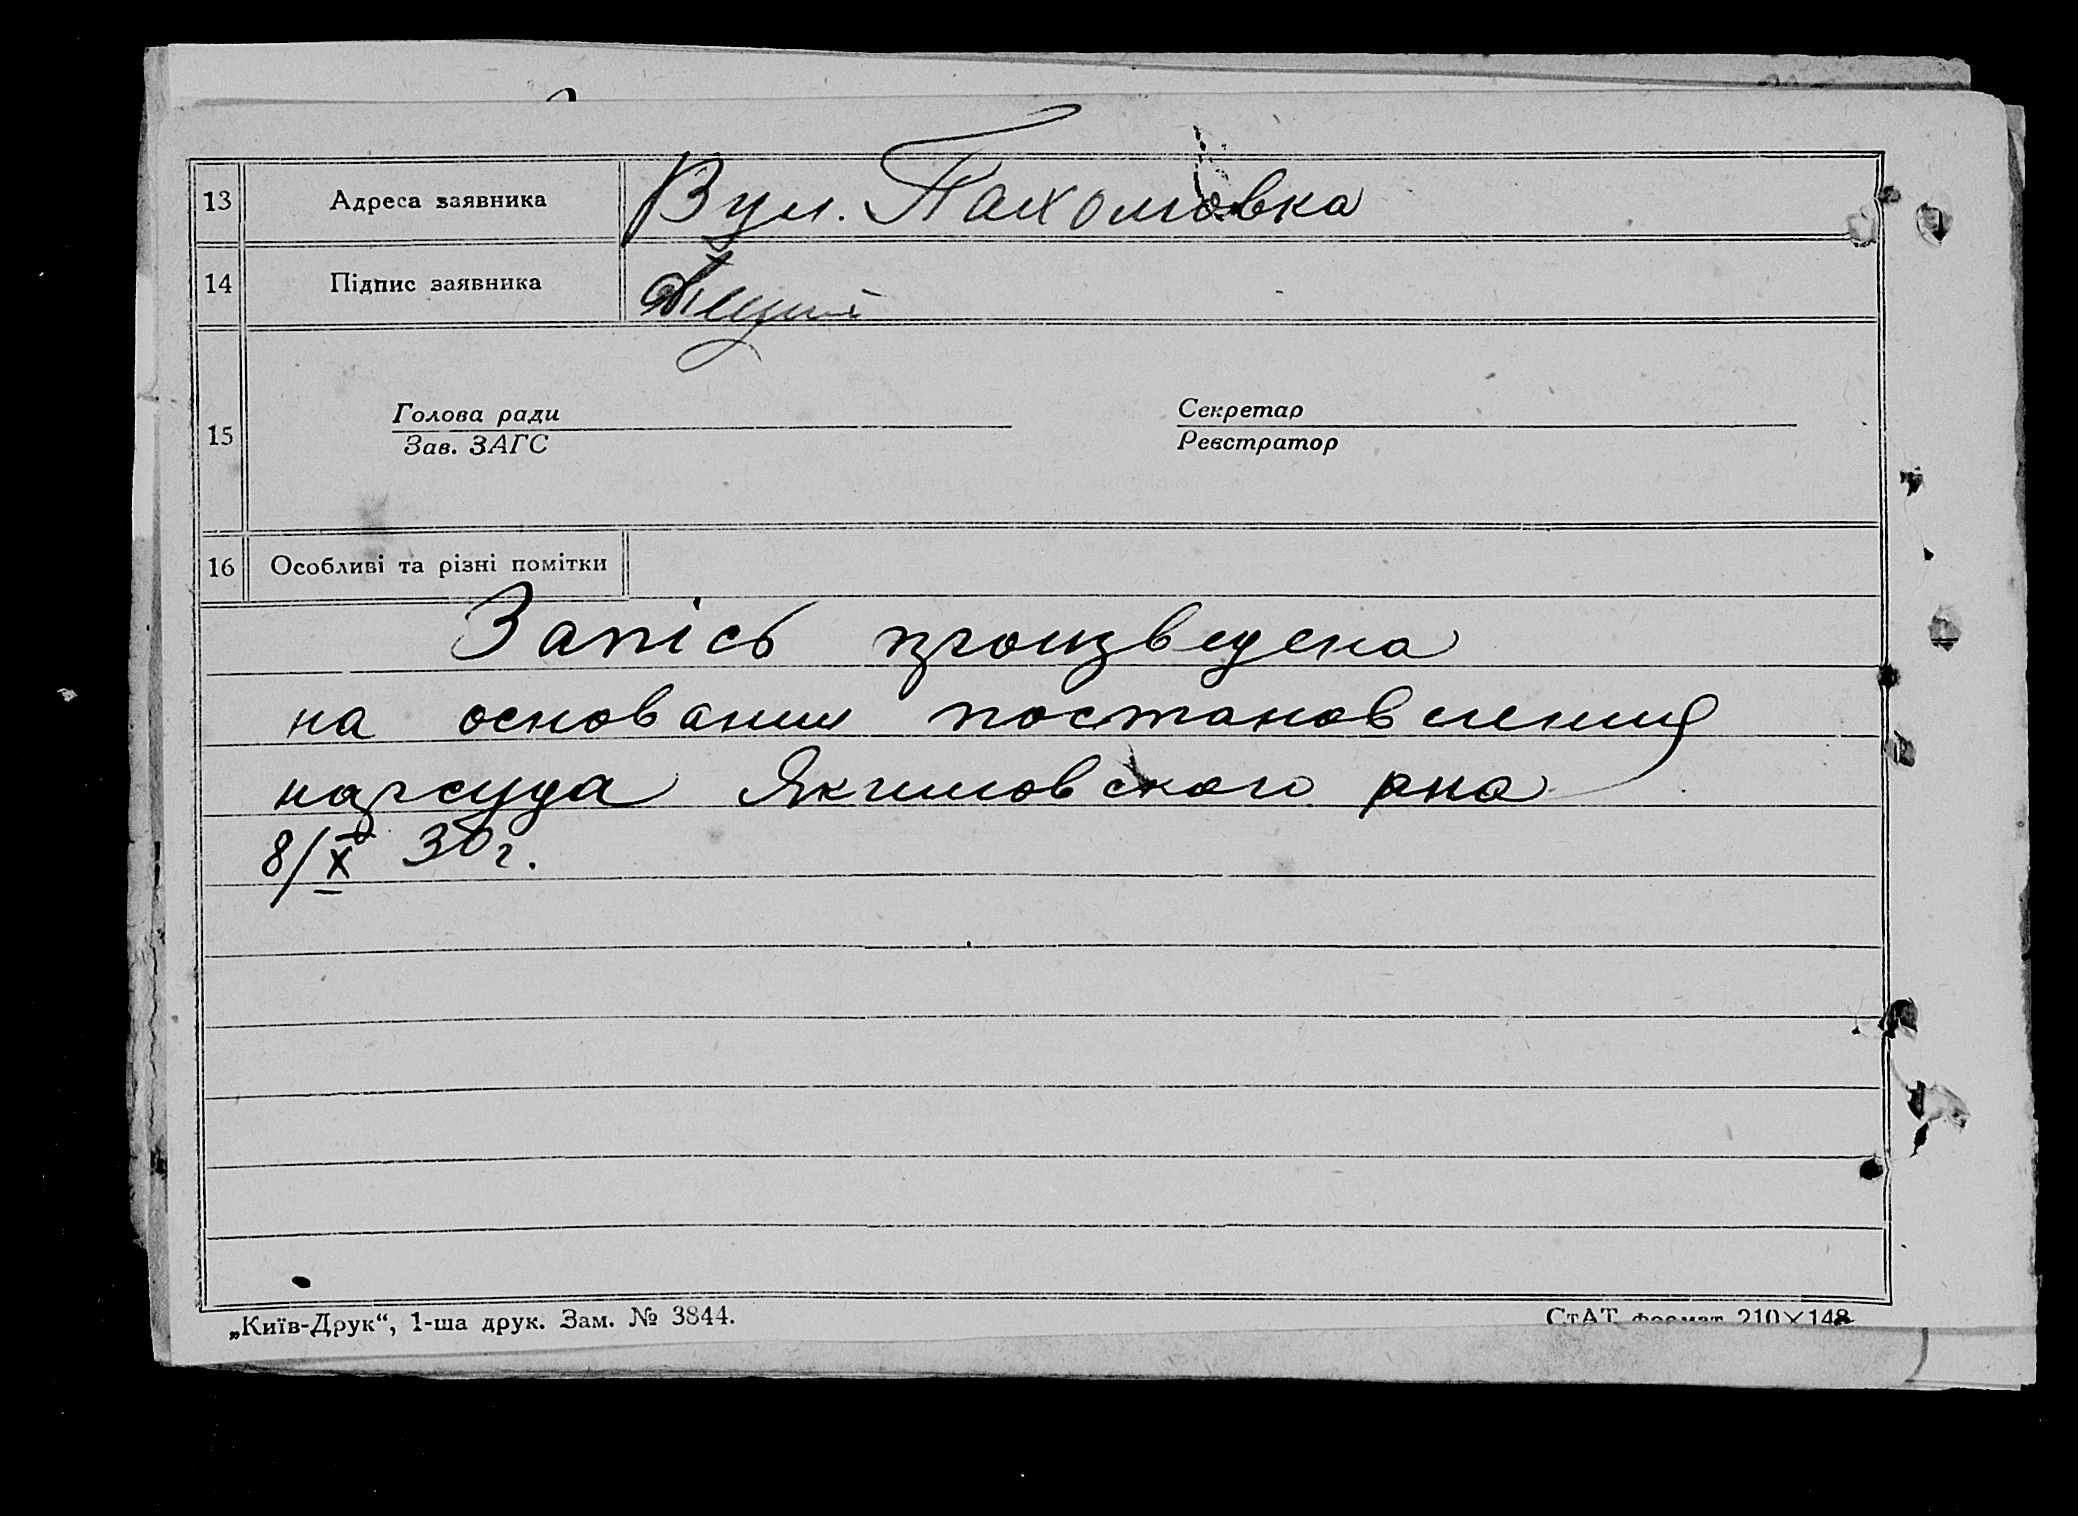 13 Адреса заявника Вул. Пахомовка
14 Підпис заявника
15 Голова ради Секретар
Зав. ЗАГС Реєстратор
16 Особливі та різні помітки
Запісь произведена
на основании постановления
нарсуда Якимовского рна
8/X 30 г.
„Київ-Друк“, 1-ша друк. Зам. № 3844. СтАТ формат 210×148